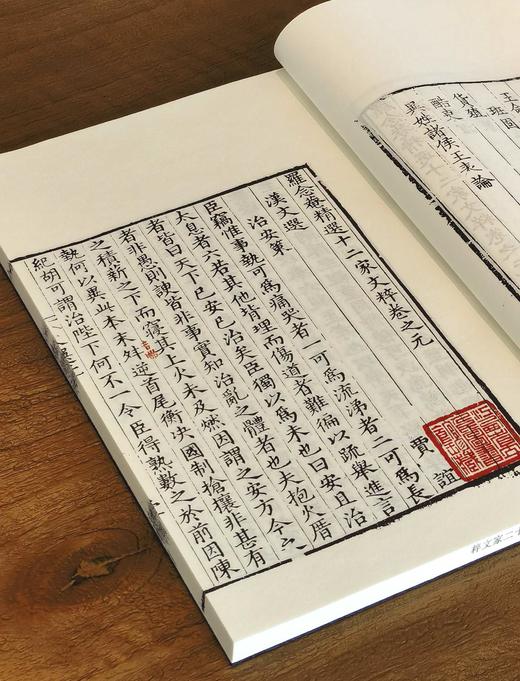 王命
班固
貨殖
酷吏
異姓諸侯王表論
羅念菴精選十二家文粹卷之元
漢文選
治安策 賈誼
臣竊惟事埶可爲痛哭者一可爲流涕者二可爲長
太息者六若其他背理而傷道者難徧以疏舉進言
者皆曰天下已安已治矣臣獨以爲未也曰安且治
者非愚則諛皆非事實知治亂之體者也夫抱火厝
之積薪之下而寢其上火未及燃因謂之安方今之
埶何以異此本末舛逆首尾衡決國制搶攘非甚有
紀胡可謂治陛下何不一令臣得熟數之於前因陳
粹文家二十